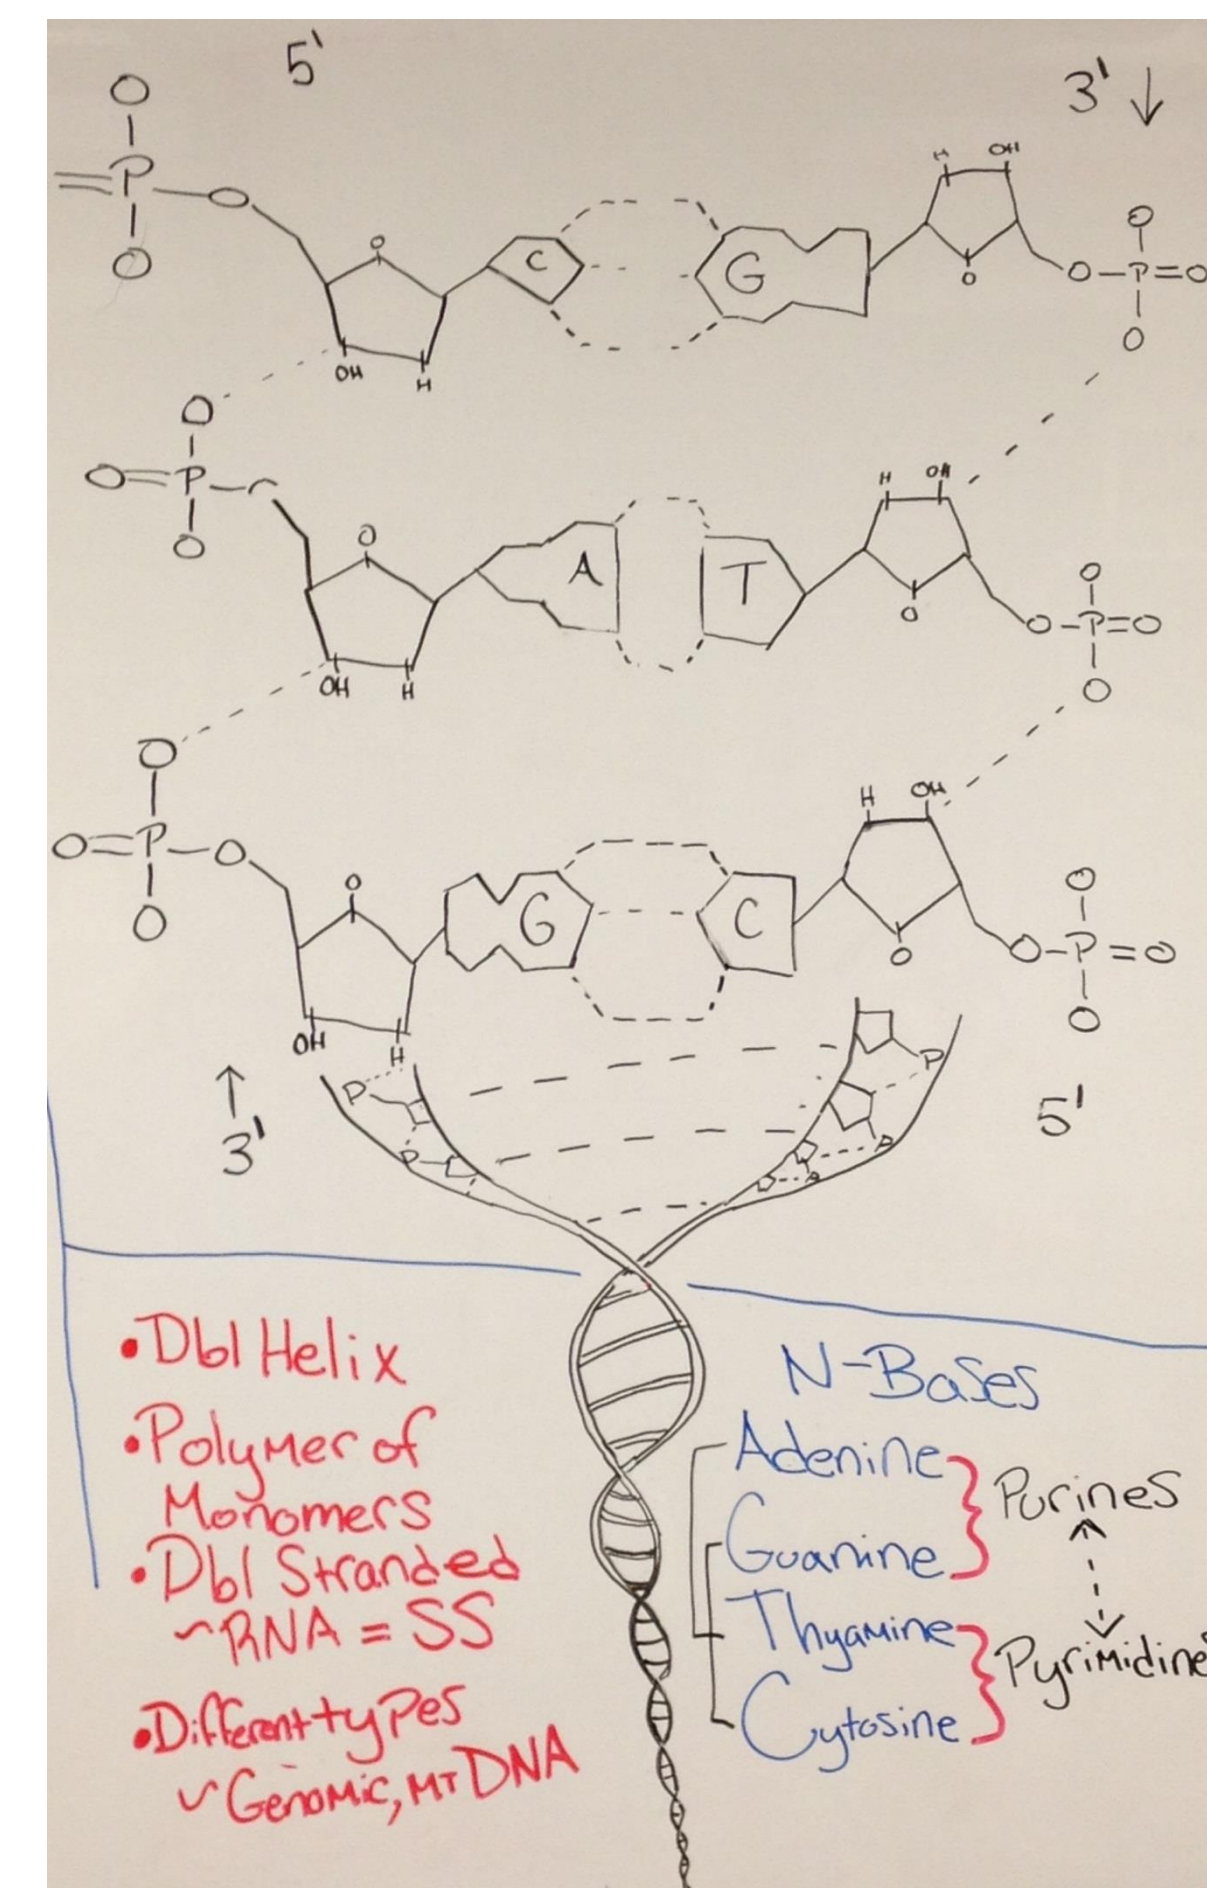 5'
3' ↓
O
P
O
O
O
C
G
H
OH
O
P
O
O
O
O
OH
H
O
O
P
O
O
A
T
H
OH
O
O
P
O
O
OH
H
O
O
P
O
O
O
G
C
H
OH
O
O
P
O
O
OH
H
↑
3'
5'
P
P
P
P
P
• Dbl Helix
• Polymer of
Monomers
• Dbl Stranded
~RNA = SS
• Different types
~ Genomic, MT DNA
N-Bases
Adenine
Guanine
Thyamine
Cytosine
Purines
Pyrimidines